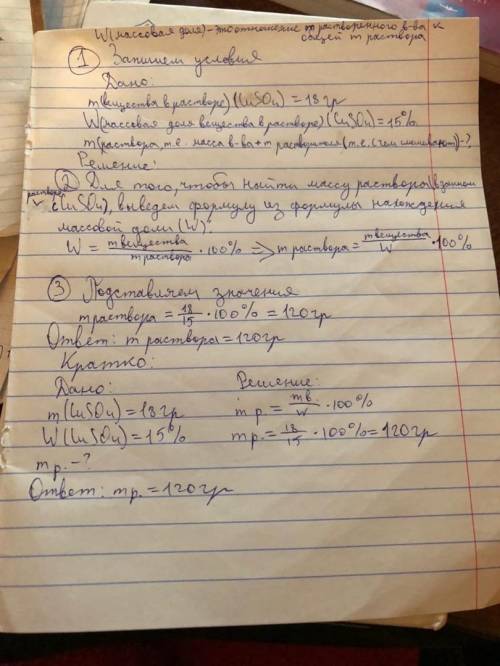 W(массовая доля) - это отношение m растворенного в-ва к
общей m раствора
① Запишем условия
Дано:
m(вещества в растворе)(CuSO4) = 18гр
W(массовая доля вещества в растворе)(CuSO4)=15%
m(раствора, т.е. масса в-ва+m растворителя(т.е. с чем смешивают))-?
Решение:
② Для того, чтобы найти массу раствора(в данном
растворе
CuSO4), выведем формулу из формулы нахождения
массовой доли (W):
W = m вещества / m раствора · 100% => m раствора = m вещества / W · 100%
③ Подставляем значения
m раствора = 18/15 · 100% = 120гр
Ответ: m раствора = 120гр
Кратко:
Дано: Решение:
m(CuSO4)=18гр m р. = mв/W · 100%
W(CuSO4)=15% mр. = 18/15 · 100% = 120гр
mр. - ?
Ответ: mр. = 120гр